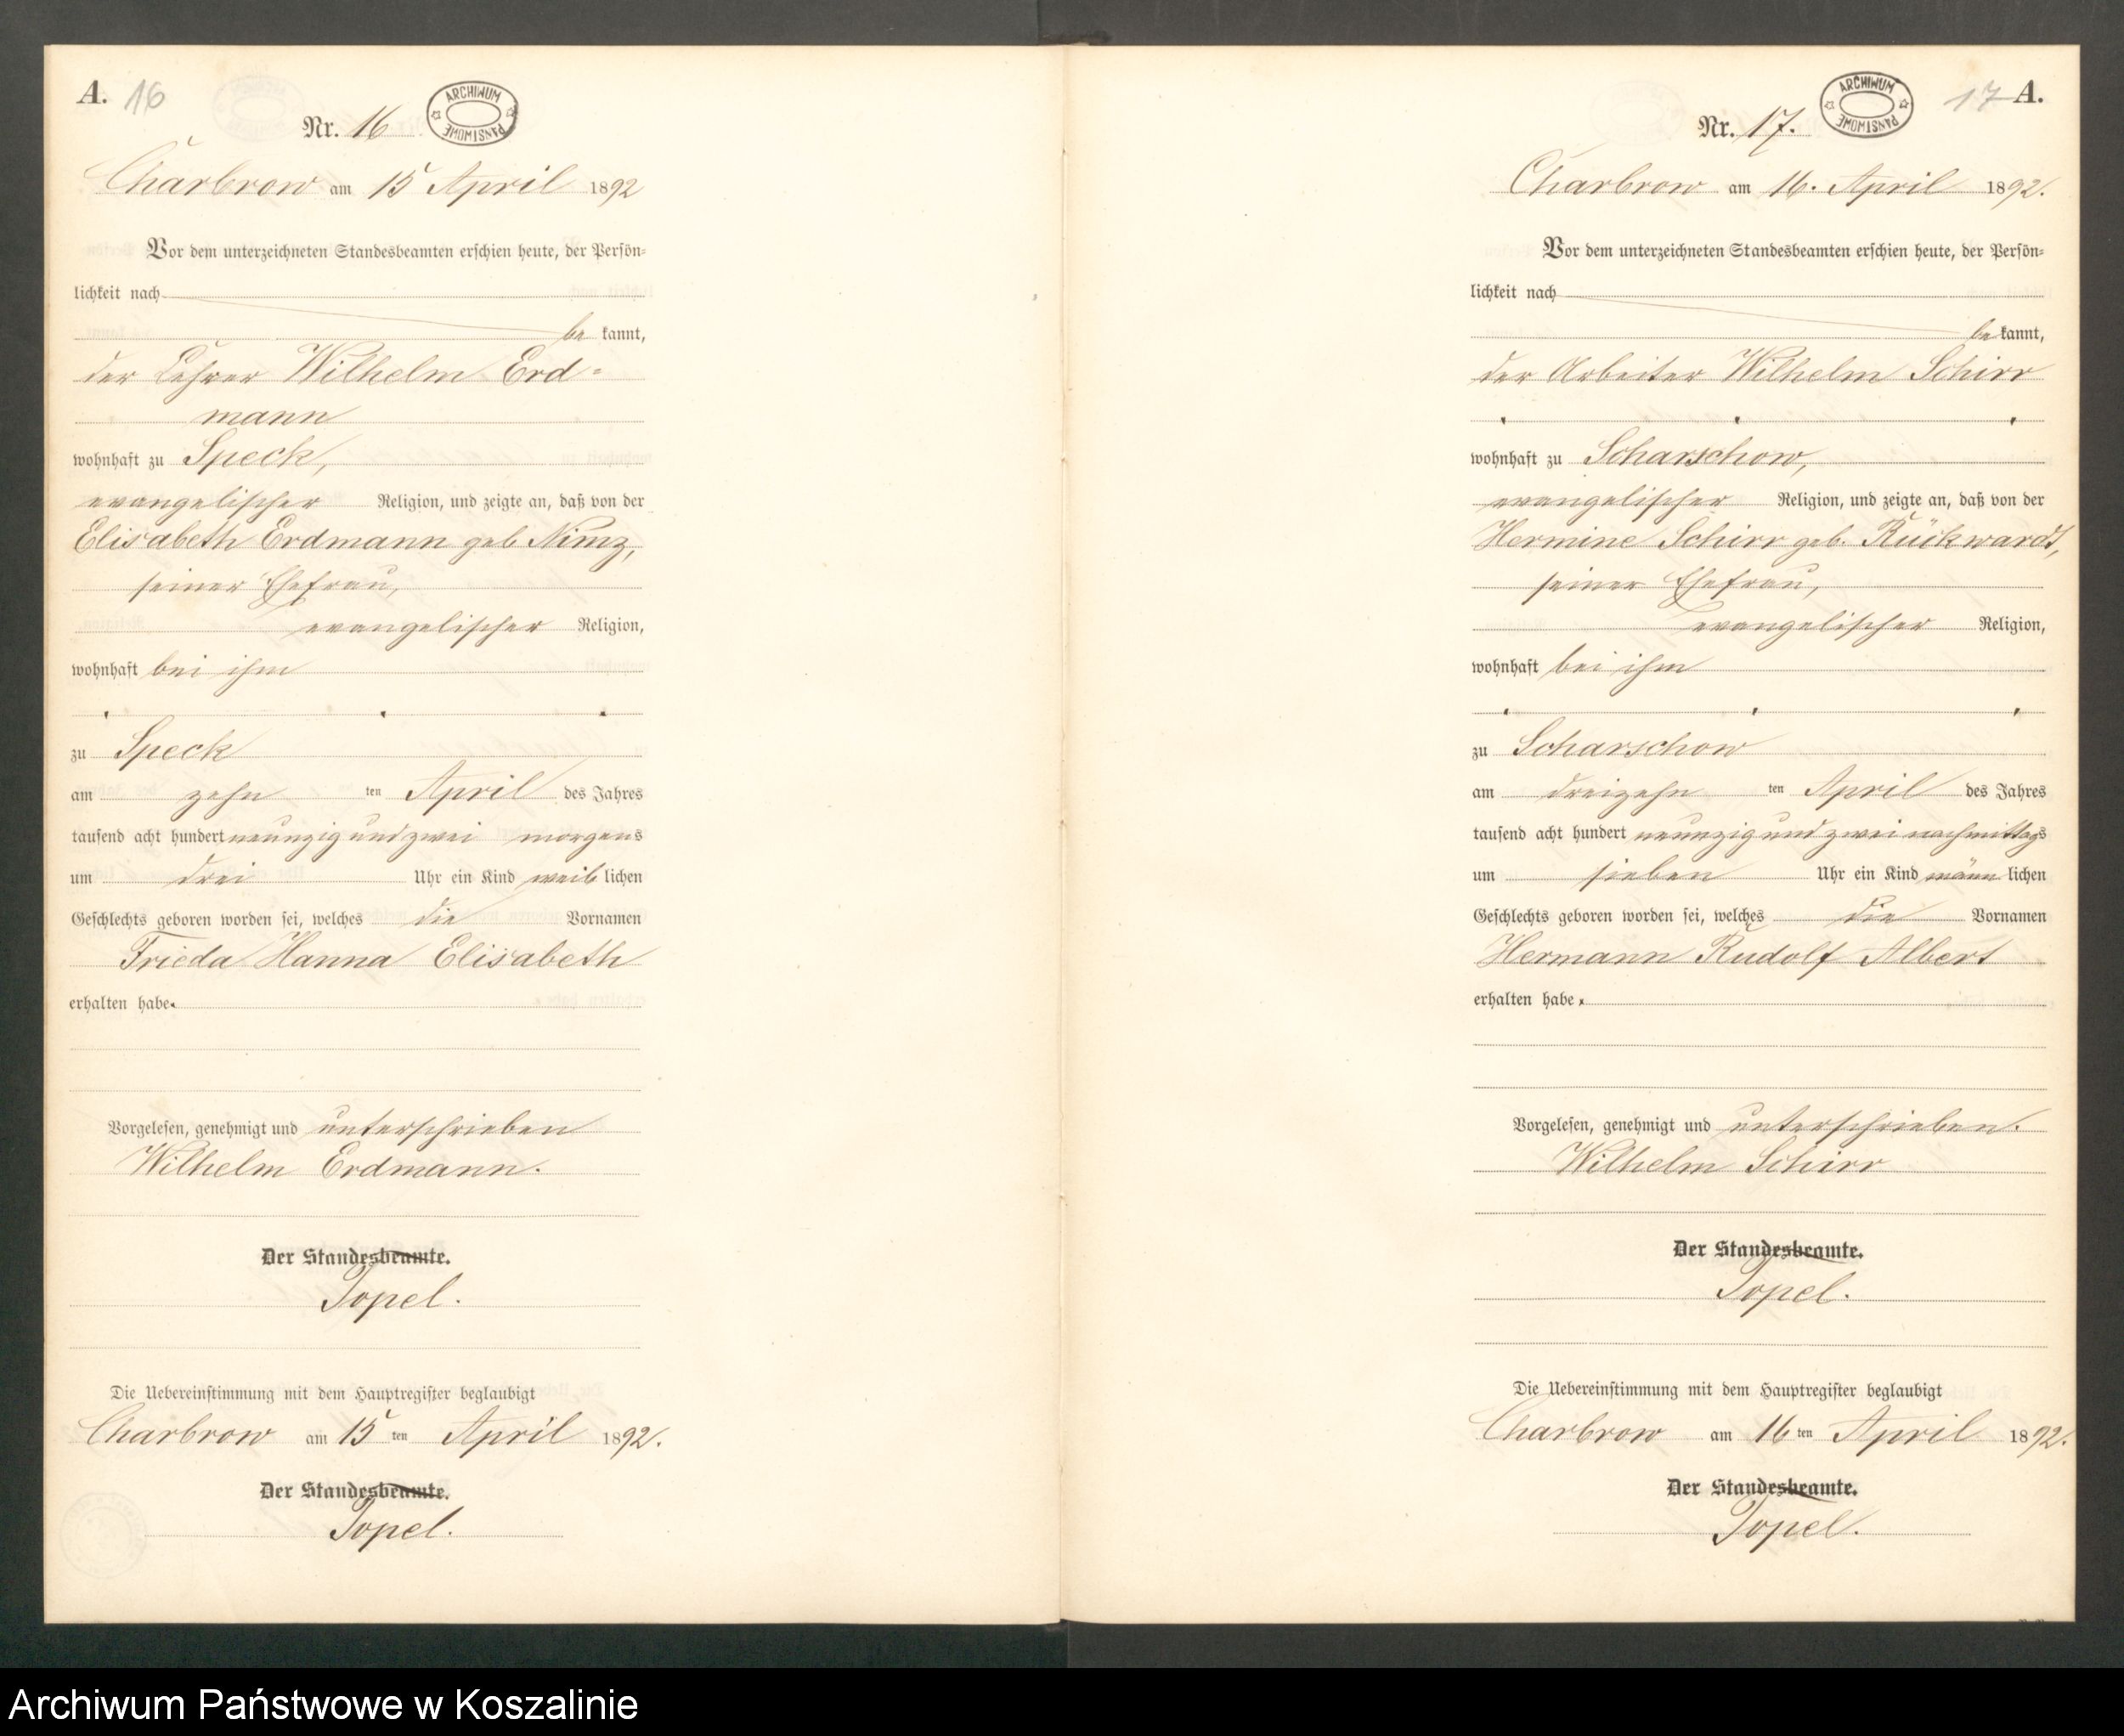 A. 16
ARCHIWUM PAŃSTWOWE
Nr. 16
Charbrow am 15 April 1892
Vor dem unterzeichneten Standesbeamten erschien heute, der Persön-
lichkeit nach
be kannt,
der Lehrer Wilhelm Erd-
mann
wohnhaft zu Speck,
evangelischer Religion, und zeigte an, daß von der
Elisabeth Erdmann geb. Nimz,
seiner Ehefrau,
evangelischer Religion,
wohnhaft bei ihm
zu Speck
am zehn ten April des Jahres
tausend acht hundert neunzig und zwei morgens
um drei Uhr ein Kind weib lichen
Geschlechts geboren worden sei, welches die Vornamen
Frieda Hanna Elisabeth
erhalten habe.
Vorgelesen, genehmigt und unterschrieben
Wilhelm Erdmann.
Der Standesbeamte.
Topel.
Die Uebereinstimmung mit dem Hauptregister beglaubigt
Charbrow am 15 ten April 1892.
Der Standesbeamte.
Topel.
17 A.
ARCHIWUM PAŃSTWOWE
Nr. 17.
Charbrow am 16. April 1892.
Vor dem unterzeichneten Standesbeamten erschien heute, der Persön-
lichkeit nach
be kannt,
der Arbeiter Wilhelm Schirr
wohnhaft zu Scharschow,
evangelischer Religion, und zeigte an, daß von der
Hermine Schirr geb. Rückwardt,
seiner Ehefrau,
evangelischer Religion,
wohnhaft bei ihm
zu Scharschow
am dreizehn ten April des Jahres
tausend acht hundert neunzig und zwei nachmittags
um sieben Uhr ein Kind männ lichen
Geschlechts geboren worden sei, welches die Vornamen
Hermann Rudolf Albert
erhalten habe.
Vorgelesen, genehmigt und unterschrieben.
Wilhelm Schirr
Der Standesbeamte.
Topel.
Die Uebereinstimmung mit dem Hauptregister beglaubigt
Charbrow am 16 ten April 1892.
Der Standesbeamte.
Topel.
Archiwum Państwowe w Koszalinie